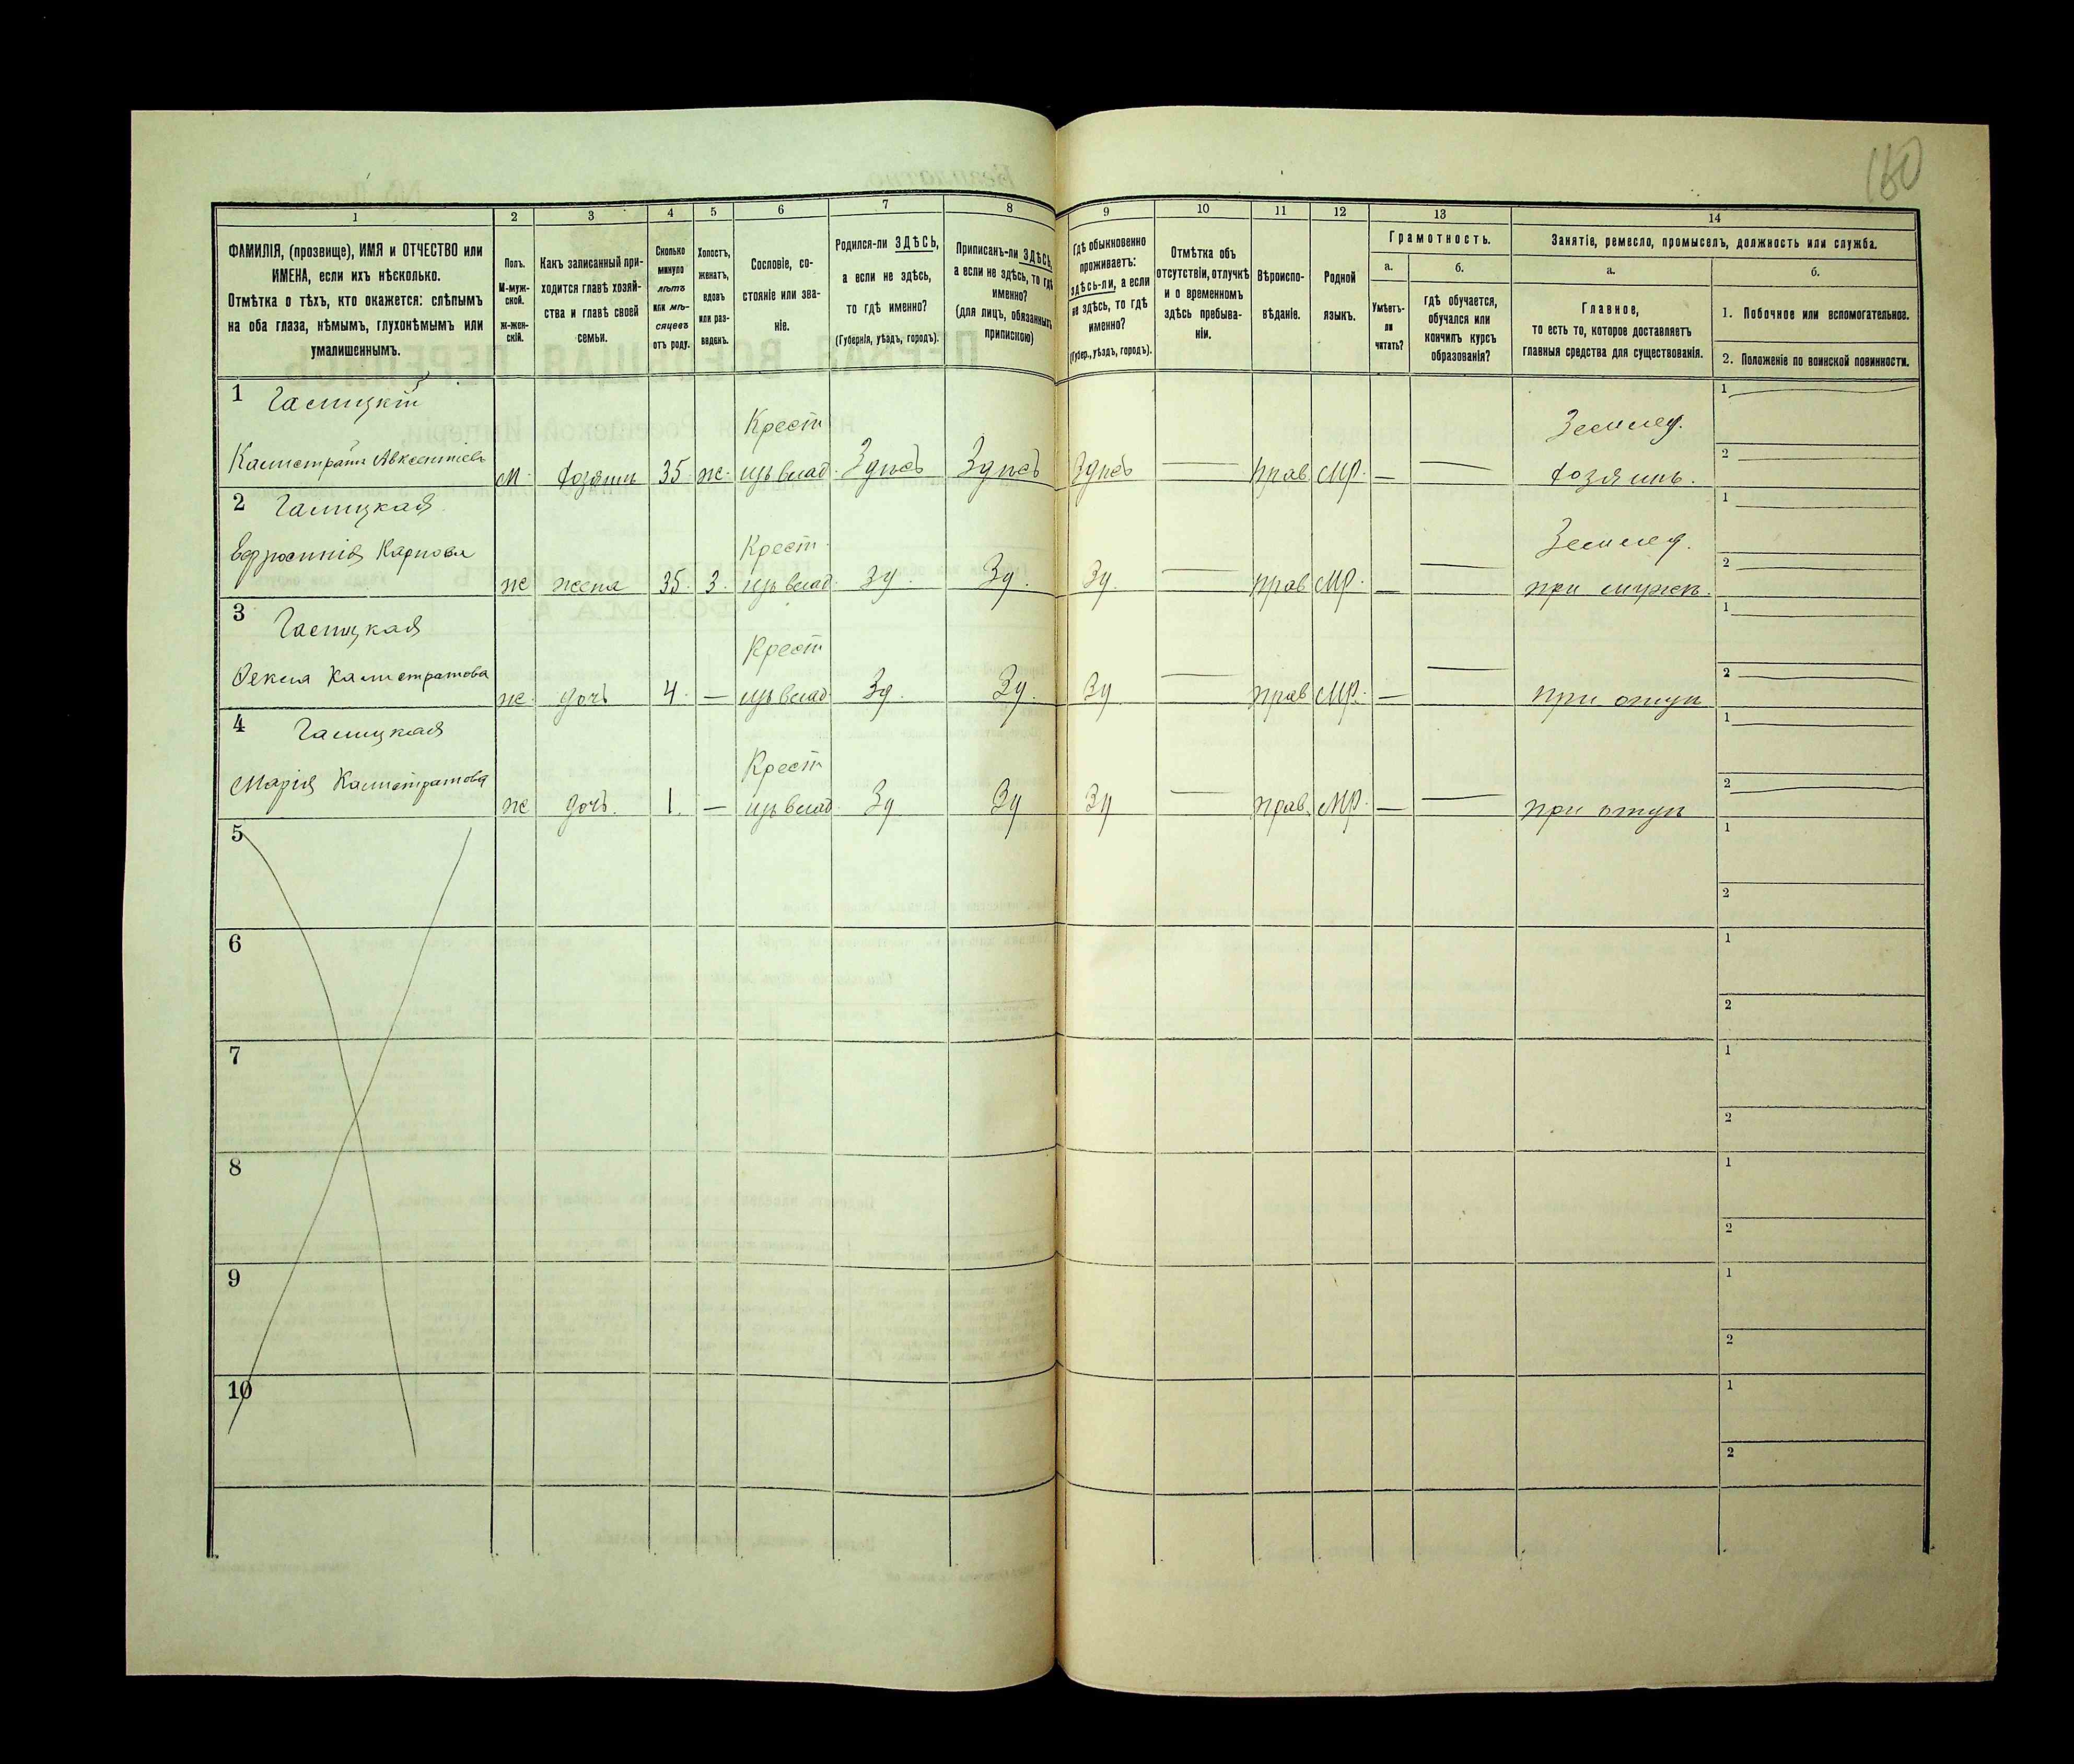 160
1 2 3 4 5 6 7 8 9 10 11 12 13 14
ФАМИЛІЯ, (прозвище), ИМЯ и ОТЧЕСТВО или
ИМЕНА, если ихъ нѣсколько.
Отмѣтка о тѣхъ, кто окажется: слѣпымъ
на оба глаза, нѣмымъ, глухонѣмымъ или
умалишеннымъ.
Полъ.
М-муж-
ской.
ж-жен-
скій.
Какъ записанный при-
ходится главѣ хозяй-
ства и главѣ своей
семьи.
Сколько
минуло
лѣтъ
или мѣ-
сяцевъ
отъ роду.
Холостъ,
женатъ,
вдовъ
или раз-
веденъ.
Сословіе, со-
стояніе или зва-
ніе.
Родился-ли ЗДѢСЬ,
а если не здѣсь,
то гдѣ именно?
(Губернія, уѣздъ, городъ).
Приписанъ-ли ЗДѢСЬ,
а если не здѣсь, то гдѣ
именно?
(для лицъ, обязанныхъ
припискою)
Гдѣ обыкновенно
проживаетъ:
здѣсь-ли, а если
не здѣсь, то гдѣ
именно?
(Губер., уѣздъ, городъ).
Отмѣтка объ
отсутствіи, отлучкѣ
и о временномъ
здѣсь пребыва-
ніи.
Вѣроиспо-
вѣданіе.
Родной
языкъ.
Грамотность.
а.
Умѣетъ-
ли
читать?
б.
гдѣ обучается,
обучался или
кончилъ курсъ
образованія?
Занятіе, ремесло, промыселъ, должность или служба.
а.
Главное,
то есть то, которое доставляетъ
главныя средства для существованія.
б.
1. Побочное или вспомогательное.
2. Положеніе по воинской повинности.
1 Галицкій Крест Землед. 1
Калистратъ Авксентіевъ м. Хозяинъ 35 ж. изъ влад. Здѣсь Здѣсь Здѣсь — прав. мр. — — Хозяинъ. 2
2 Галицкая Крест. Землед. 1
Ефросинія Карпова ж жена 35. З. изъ влад. Зд. Зд. Зд. — прав мр. — — при мужѣ. 2
3 Галицкая Крест 1
Фекла Калистратова ж. дочь 4. — изъ влад. Зд. Зд. Зд — прав мр. — — при отцѣ 2
4 Галицкая Крест 1
Марія Калистратова ж дочь. 1. — изъ влад. Зд Зд Зд — прав. мр. — — при отцѣ 2
5 1
2
6 1
2
7 1
2
8 1
2
9 1
2
10 1
2